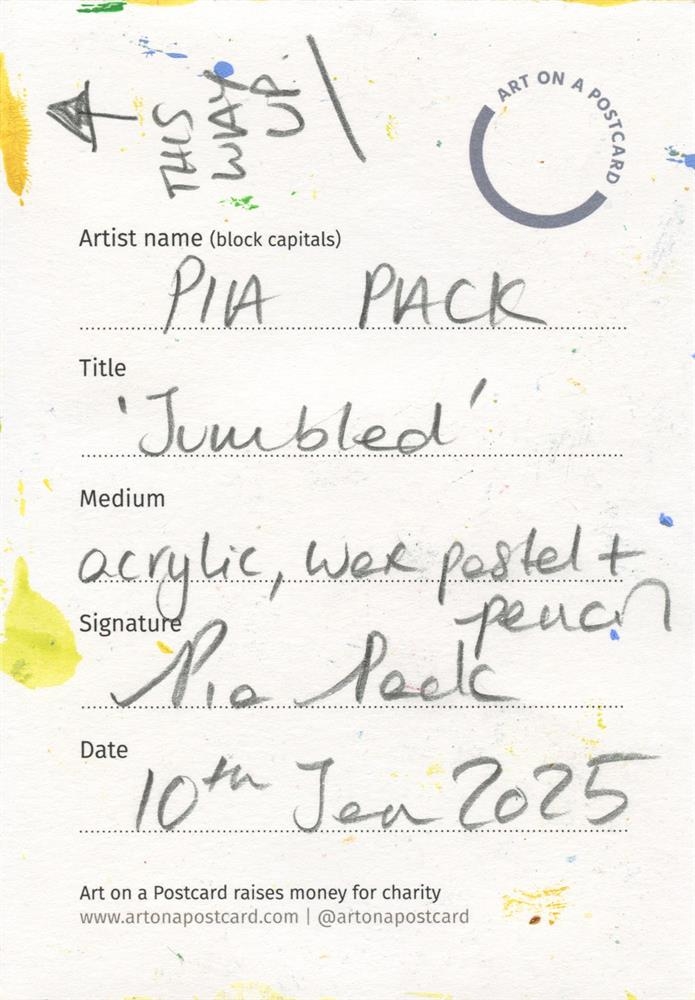 THIS
WAY
UP.
ART ON A POSTCARD
Artist name (block capitals)
PIA PACK
Title
'Jumbled'
Medium
acrylic, wax pastel +
pencil
Signature
Pia Pack
Date
10th Jan 2025
Art on a Postcard raises money for charity
www.artonapostcard.com | @artonapostcard